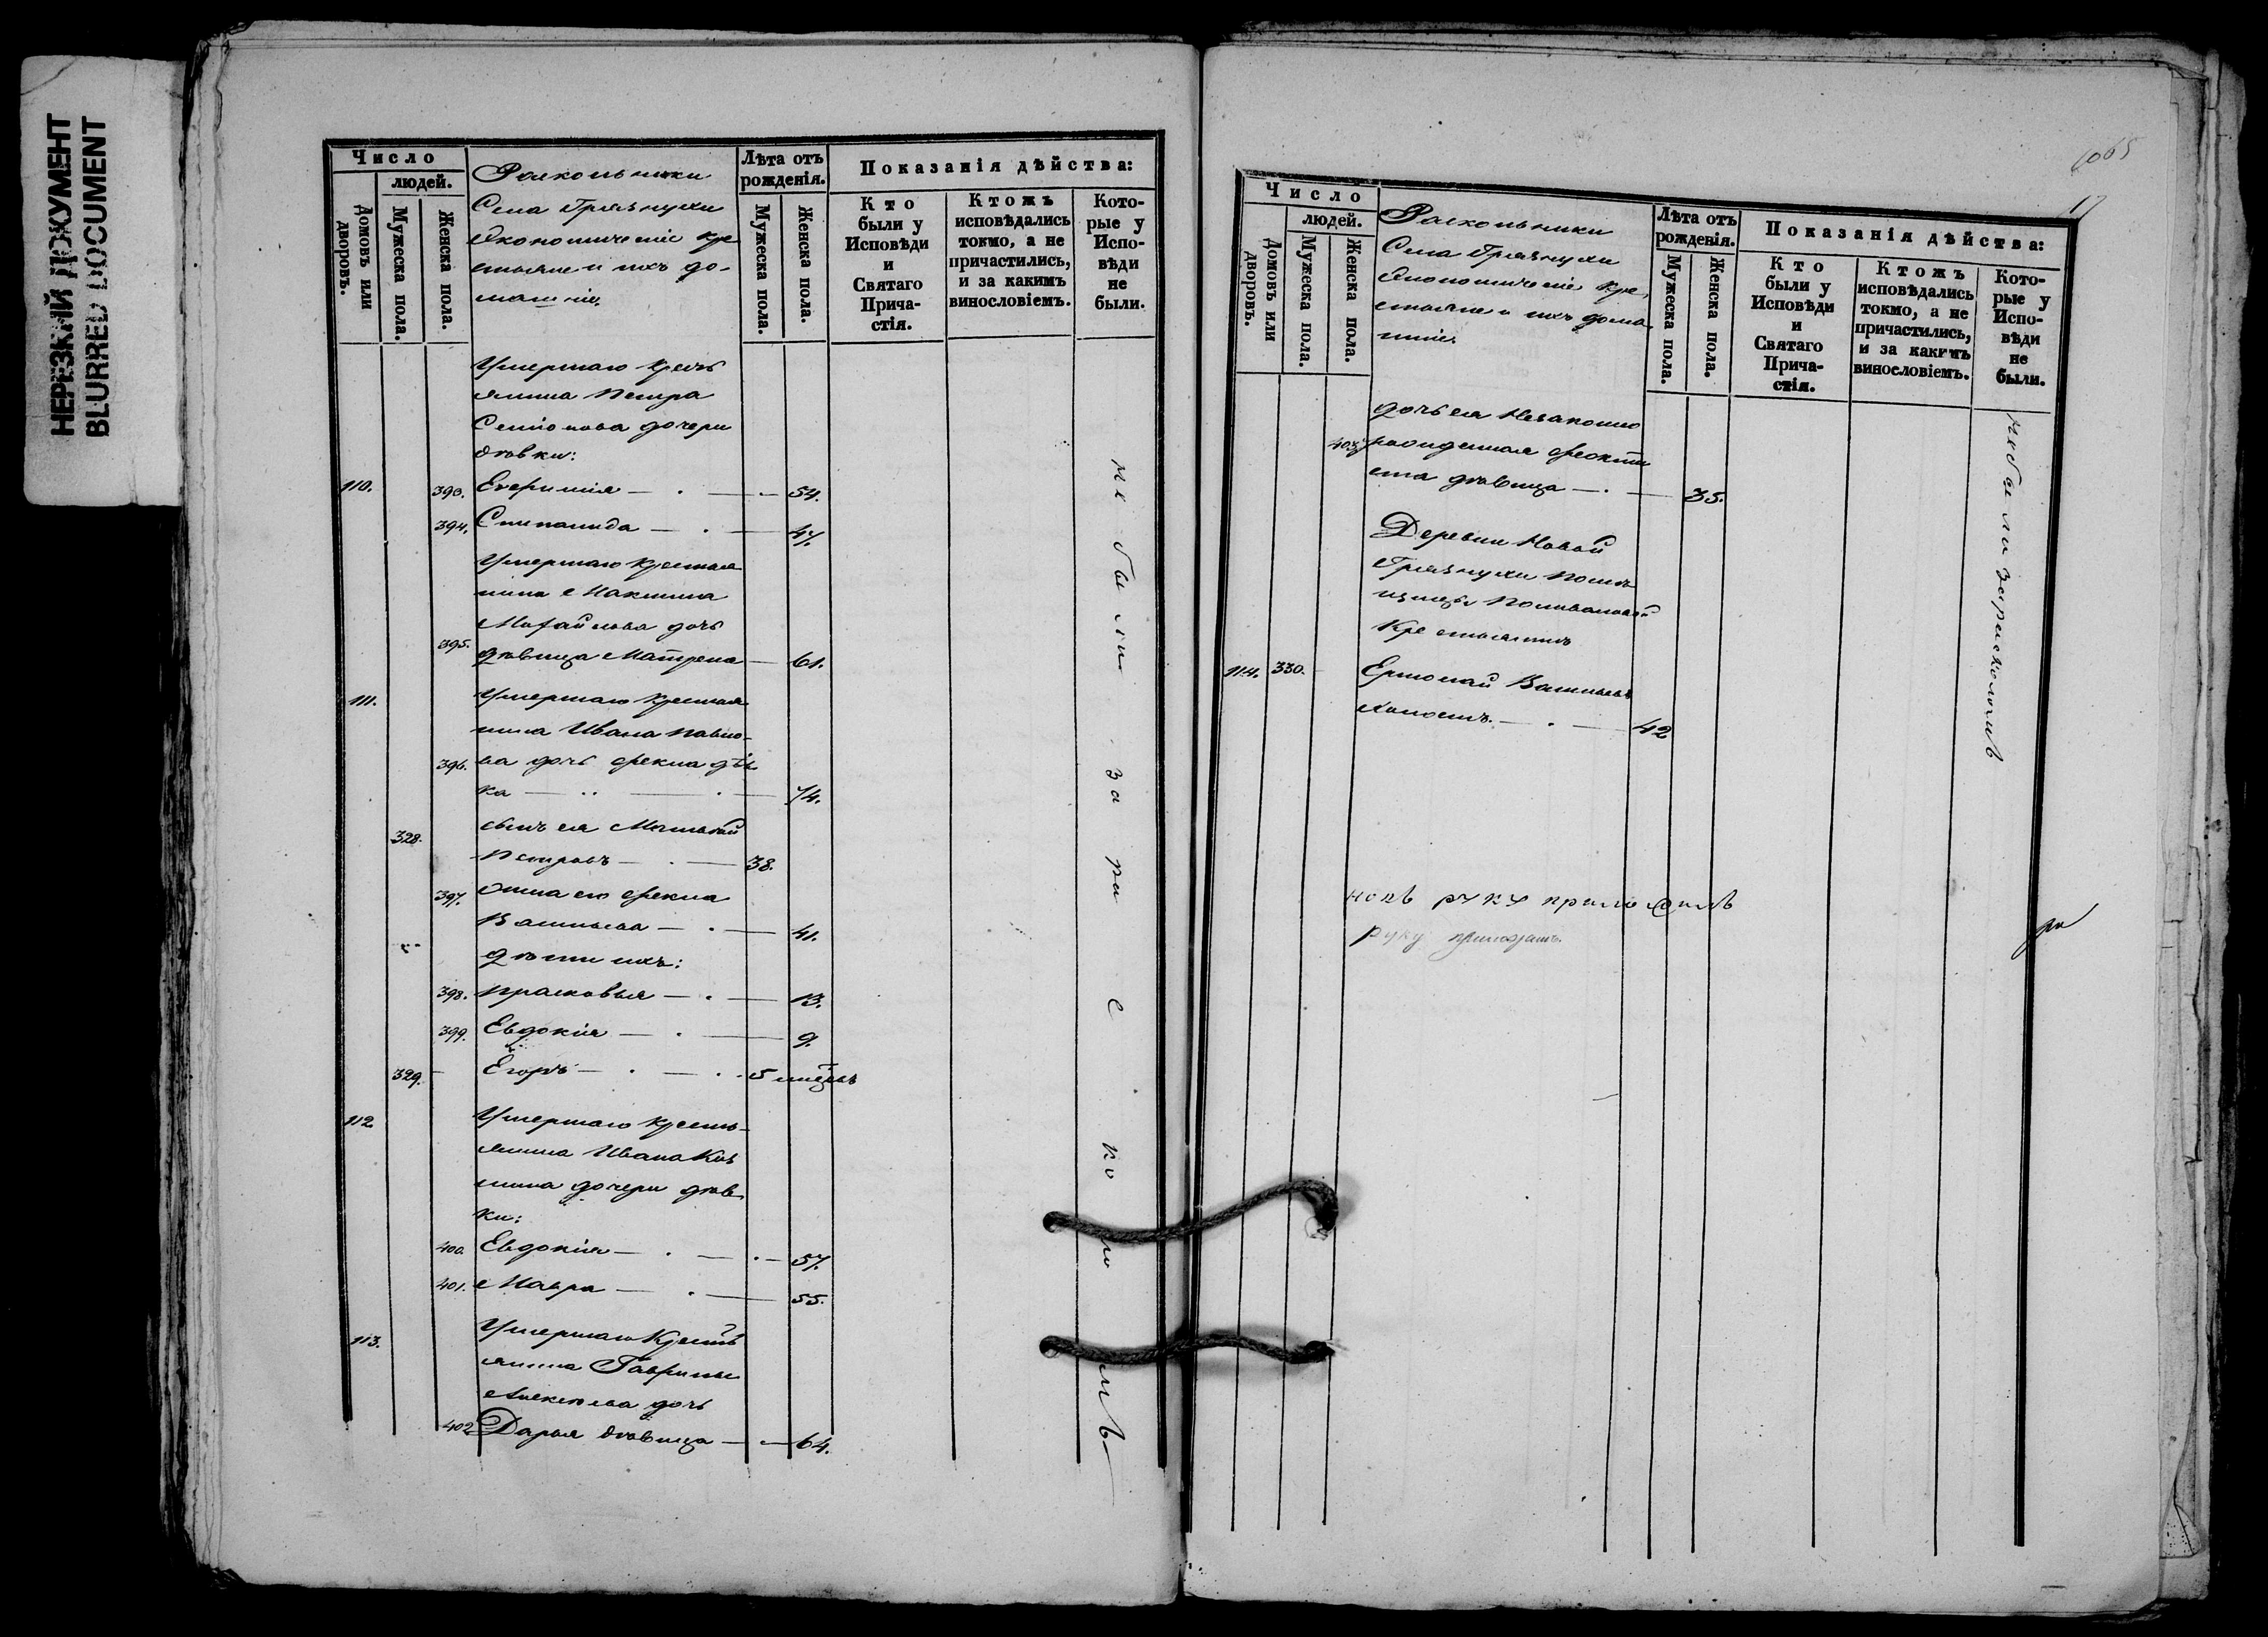 НЕРЕЗКИЙ ДОКУМЕНТ
BLURRED DOCUMENT
Число
людей.
Домовъ или дворовъ.
Мужеска пола.
Женска пола.
Раскольники
Села Грязнухи
Экономическіе кре
стьяне и ихъ до-
машніе.
Лѣта отъ рожденія.
Мужеска пола.
Женска пола.
Показанія дѣйства:
Кто были у Исповѣди и Святаго Прича-стія.
Ктожъ исповѣдались токмо, а не причастились, и за какимъ винословіемъ.
Кото-рые у Испо-вѣди не были.
Умершаго Кресть
янина Петра
Семіонова дочери
дѣвки:
110. 393. Евфимія 54.
394. Степанида 47.
Умершаго Крестья
нина Максима
Михайлова дочь
395. дѣвица Матрена 61.
111. Умершаго Крестья
нина Ивана Павло-
396. ва дочь Фекла дѣв
ка 74.
328. сынъ ея Матвѣй
Петровъ 38.
397. жена его Фекла
Васильева 41.
дѣти ихъ:
398. Прасковья 13.
399. Евдокія 9.
329. Егоръ 5 мѣсяцъ
112. Умершаго Кресть-
янина Ивана Коз
мина дочери дѣв
ки:
400. Евдокія 57.
401. Мавра 55.
113. Умершаго Кресть
янина Гаврилы
Алексѣева дочь
402. Дарья дѣвица 64.
не были за рас ко ло мъ
1065
17
Число
людей.
Домовъ или дворовъ.
Мужеска пола.
Женска пола.
Раскольники
Села Грязнухи
Экономическіе кре
стьяне и ихъ дома
шніе.
Лѣта отъ рожденія.
Мужеска пола.
Женска пола.
Показанія дѣйства:
Кто были у Исповѣди и Святаго Прича-стія.
Ктожъ исповѣдались токмо, а не причастились, и за какимъ винословіемъ.
Кото-рые у Испо-вѣди не были.
дочь ея Незаконно
403. рожденная Феокти
ста дѣвица 35.
Деревни Новой
Грязнухи Помѣ
щицы Поливановой
Крестьянинъ
114. 330. Ермолай Васильевъ
холостъ 42
не были за расколомъ
руку приложилъ
руку приложилъ.